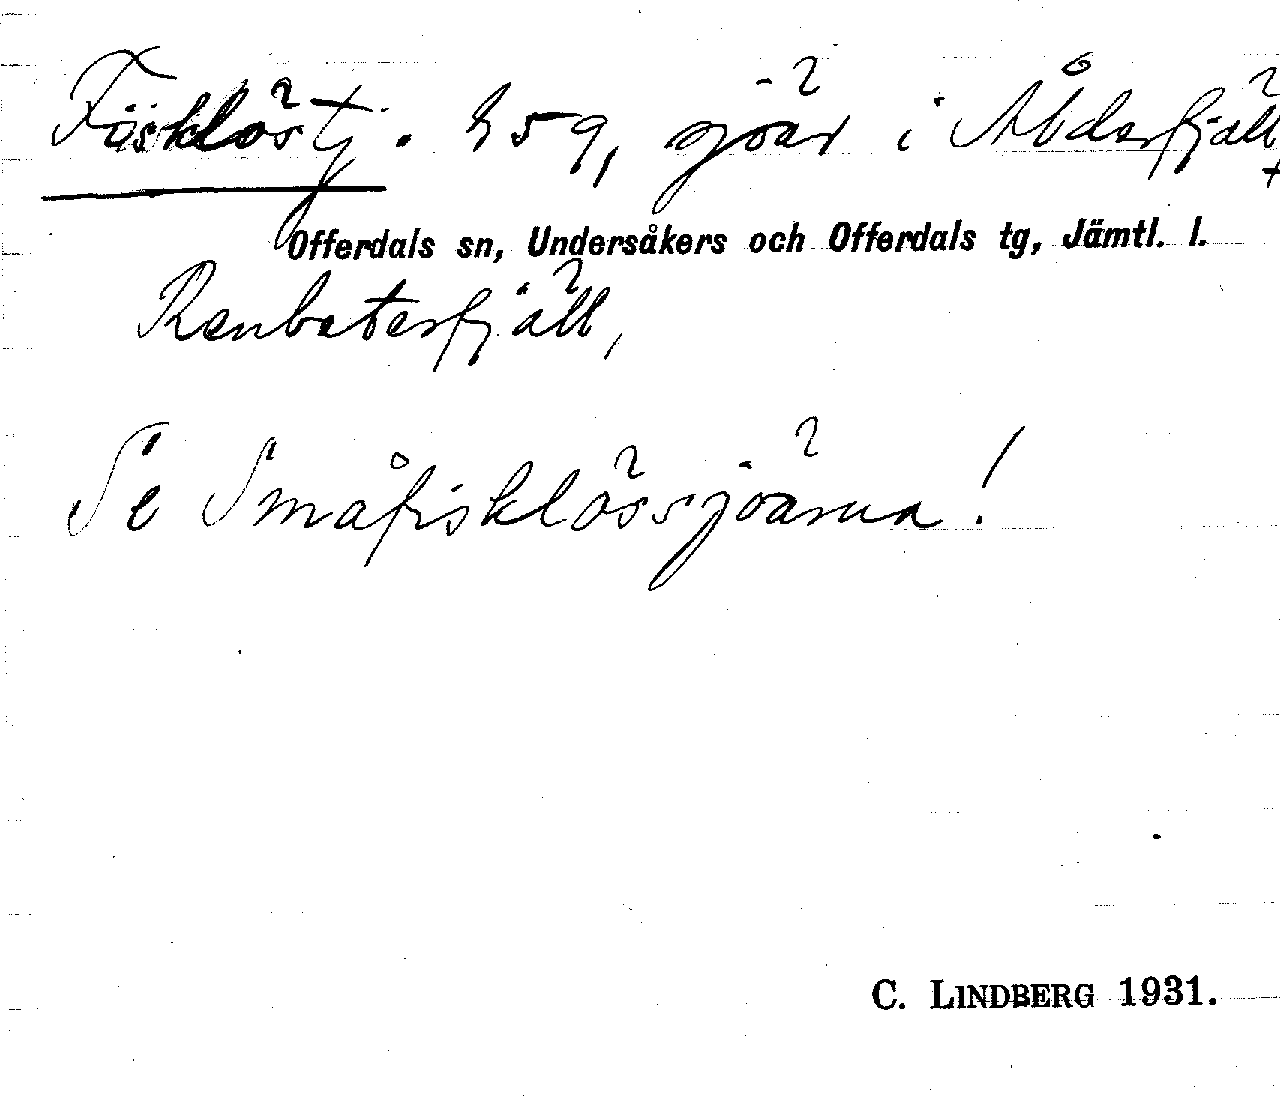 Fösklöstj. 459, sjöar i Åbderfjäll +
Offerdals sn, Undersåkers och Offerdals tg, Jämtl. l.
Renbetesfjäll,
Se Småfisklössjöarna!
C. LINDBERG 1931.